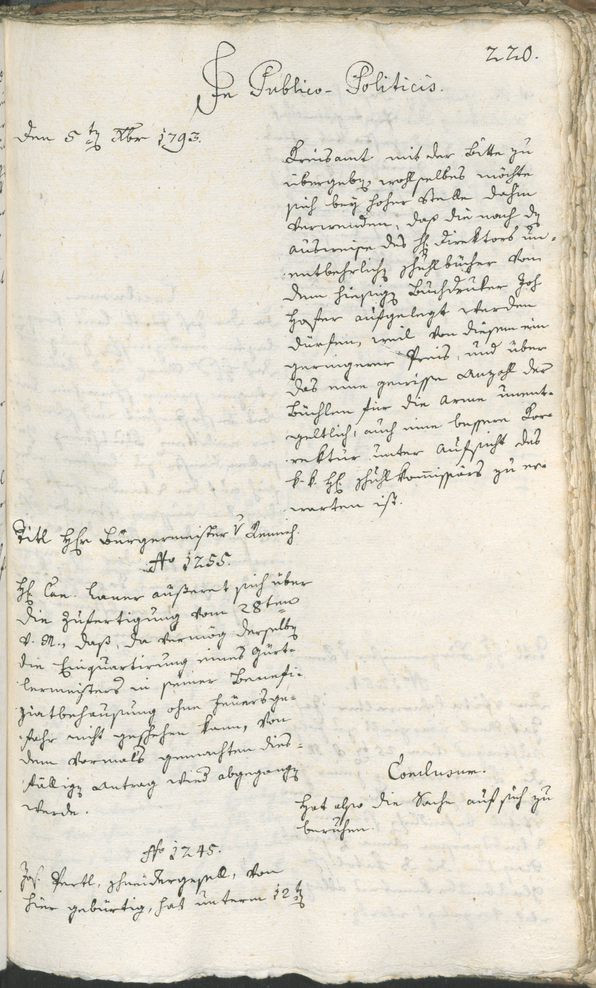 220.
In Publico-Politicis.
den 5ten Xbr 1793.
Kreisamt mit der Bitte zu
übergeben, wohlselbes möchte
sich bey hoher Stelle dahin
verwenden, daß die nach der
Ausweise des H. Direktors un-
entbehrliche Schulbücher von
dem hiesigen Buchdrucker Joh
Hofer aufgelegt werden
dürfen, weil von diesem ein
geringerer Preis, und über
das eine gewisse Anzahl der
Büchlen für die Arme unent-
geltlich, auch eine bessere Kor-
rektur unter Aufsicht des
k. k. H. Schulkommissärs zu er-
warten ist.
Titl Hhr Bürgermeister v
No 1255.
H. Can. Laner äußeret sich über
die Zufertigung vom 28ten
v. M., daß, da vermög derselben
die Einquartirung eines Gürt-
lermeisters in seiner Benefi-
ziatbehausung ohne Feuersge-
fahr nicht geschehen kann, von
dem vormals gemachten dies-
fälligen Antrag wird abgegangen
werden.
Conclusum.
Hat also die Sache auf sich zu
beruhen.
No 1245.
Jos. Pertl, Schneidergesell, von
hier gebürtig, hat unterm 12ten